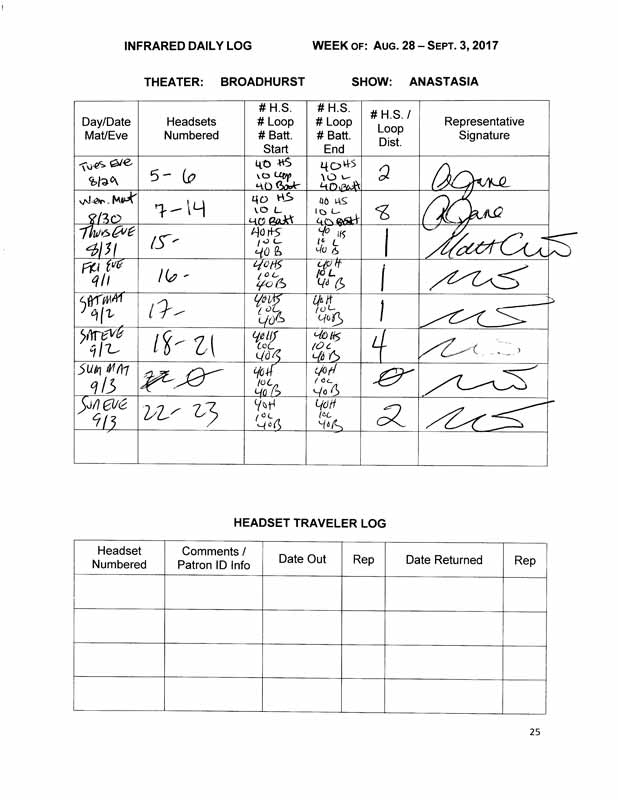 INFRARED DAILY LOG WEEK OF: AUG. 28 – SEPT. 3, 2017
THEATER: BROADHURST SHOW: ANASTASIA
Day/Date Mat/Eve Headsets Numbered # H.S. # Loop # Batt. Start # H.S. # Loop # Batt. End # H.S. / Loop Dist. Representative Signature
Tues Eve 8/29 5-6 40 HS 10 Loop 40 Batt 40 HS 10 L 40 Batt 2
Wen. Mat 8/30 7-14 40 HS 10 L 40 Batt 40 HS 10 L 40 Batt 8
Thurs EVE 8/31 15- 40 HS 10L 40 B 40 HS 10 L 40 B 1 Matt
FRI EVE 9/1 16- 40HS 10L 40B 40H 10L 40B 1
SAT MAT 9/2 17- 40HS 10L 40B 40H 10L 40B 1
SAT EVE 9/2 18-21 40HS 10L 40B 40HS 10L 40B 4
SUN MAT 9/3 0 40H 10L 40B 40H 10L 40B 0
SUN EVE 9/3 22-23 40H 10L 40B 40H 10L 40B 2
HEADSET TRAVELER LOG
Headset Numbered Comments / Patron ID Info Date Out Rep Date Returned Rep
25